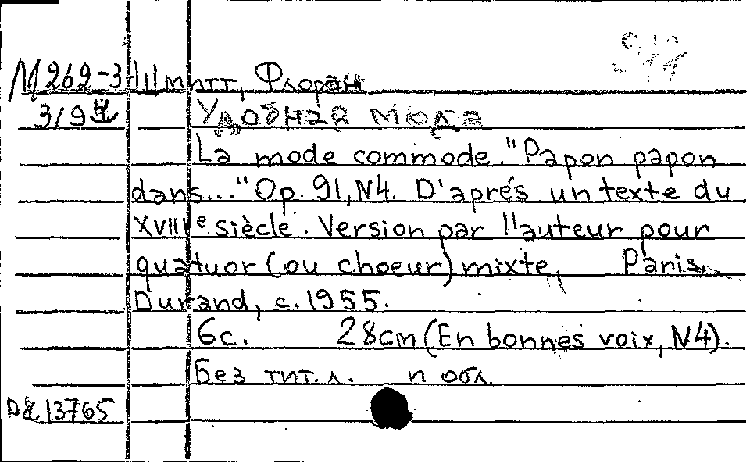 М262-3 Шмитт, Флоран
Удобная мода
La mode commode. "Papon papon
dans..." Op. 91, N4. D'aprés un texte du
XVIIIe siècle. Version par l'auteur pour
quatuor (ou choeur) mixte, Paris,
Durand, c. 1955.
6c. 28cm (En bonnes voix, N4).
Без тит. л. и обл.
13765